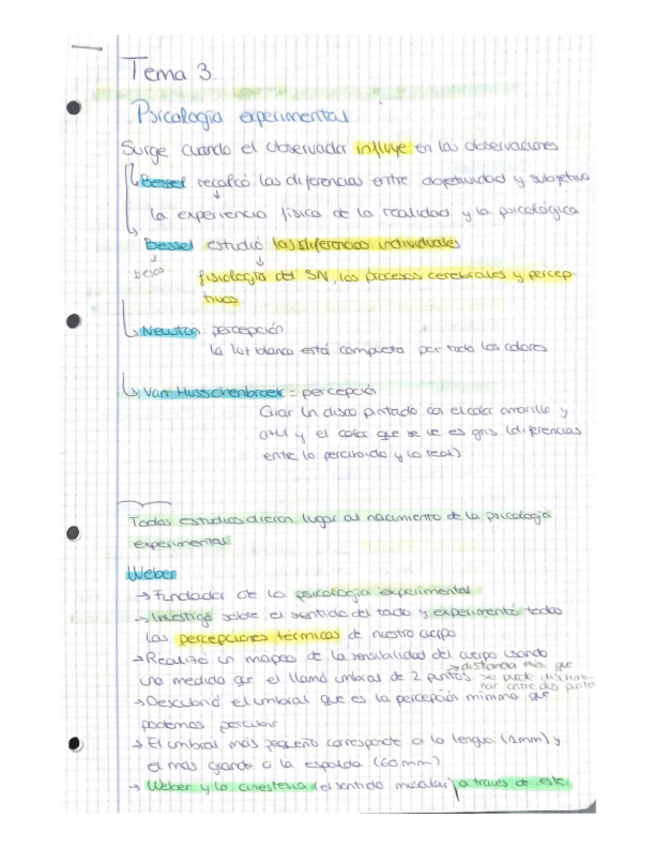 Tema 3.
Psicología experimental
Surge cuando el observador influye en las observaciones
Bessel recalcó las diferencias entre objetividad y subjetiva
la experiencia física de la realidad y la psicológica
Bessel estudió las diferencias individuales
besos fisiología del SN, los procesos cerebrales y percep
tivos
Newton: percepción
la luz blanca está compuesta por todo los colores
Van Musschenbroek = percepción
Girar un disco pintado con el color amarillo y
azul y el color que se ve es gris (diferencias
entre lo percibido y lo real)
Todos estudios dieron lugar al nacimiento de la psicología
experimental
Weber
→ Fundador de la psicología experimental
→ Investigó sobre el sentido del tacto y experimentó todas
las percepciones térmicas de nuestro cuerpo
→ Realizó un mapeo de la sensibilidad del cuerpo usando
→ distancia min que
una medida que el llamó umbral de 2 puntos se puede discrimi-
nar entre dos puntos
→ Descubrió el umbral que es la percepción mínima que
podemos percibir
→ El umbral más pequeño corresponde a la lengua (1mm) y
el más grande a la espalda (60mm)
→ Weber y la cinestesia (el sentido muscular) a través de este